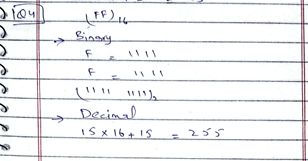 Q4
(FF)16
→ Binary
F = 1111
F = 1111
(1111 1111)2
→ Decimal
15 × 16 + 15 = 255